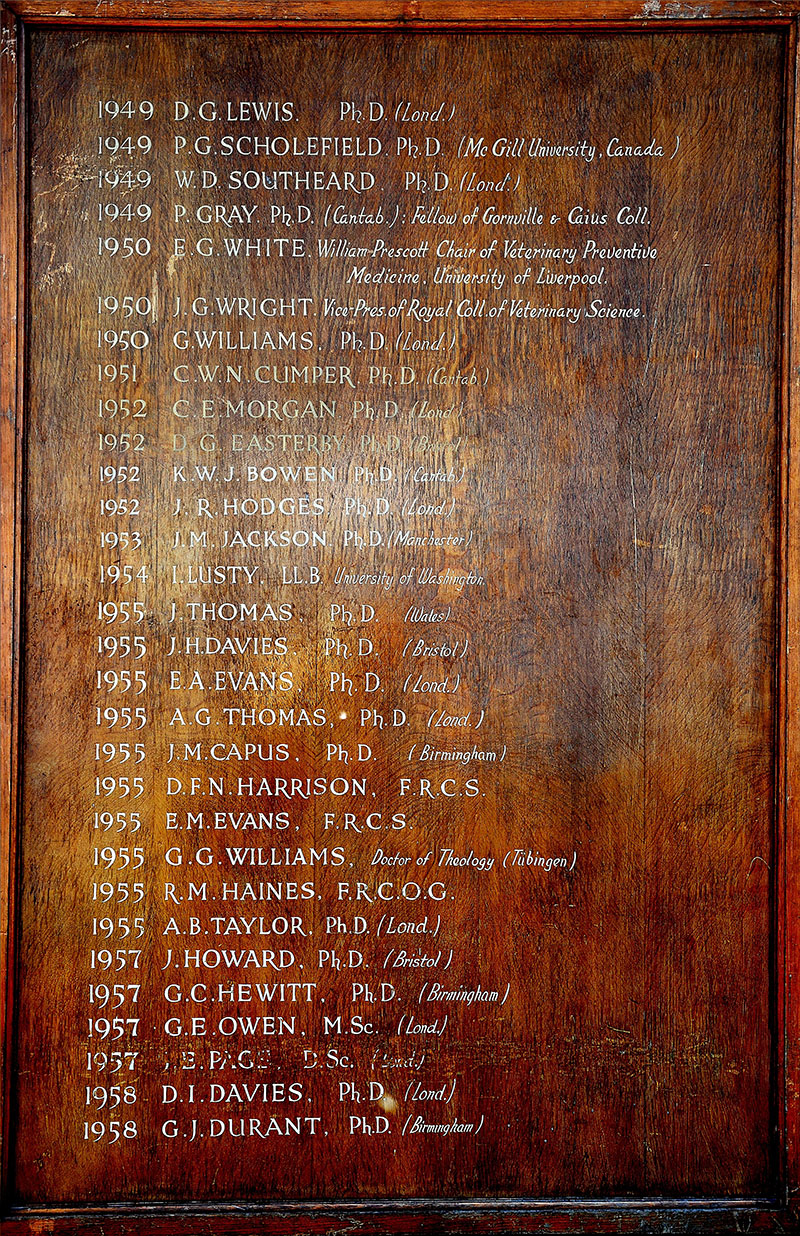 1949 D.G.LEWIS. Ph.D. (Lond.)
1949 P.G.SCHOLEFIELD. Ph.D. (Mc Gill University, Canada)
1949 W.D. SOUTHEARD. Ph.D. (Lond.)
1949 P.GRAY. Ph.D. (Cantab.): Fellow of Gornville & Caius Coll.
1950 E.G.WHITE. William-Prescott Chair of Veterinary Preventive
Medicine, University of Liverpool.
1950 J.G.WRIGHT. Vice-Pres.of Royal Coll.of Veterinary Science.
1950 G.WILLIAMS. Ph.D. (Lond.)
1951 C.W.N.CUMPER Ph.D. (Cantab.)
1952 C.E.MORGAN. Ph.D. (Lond.)
1952 D.G. EASTERBY. Ph.D. (Bristol)
1952 K.W.J. BOWEN Ph.D. (Cantab.)
1952 J.R.HODGES Ph.D. (Lond.)
1953 J.M. JACKSON. Ph.D. (Manchester)
1954 I.LUSTY. LL.B. University of Washington.
1955 J.THOMAS, Ph.D. (Wales)
1955 J.H.DAVIES. Ph.D. (Bristol)
1955 E.A.EVANS, Ph.D. (Lond.)
1955 A.G.THOMAS, Ph.D. (Lond.)
1955 J.M.CAPUS, Ph.D. (Birmingham)
1955 D.F.N.HARRISON, F.R.C.S.
1955 E.M.EVANS, F.R.C.S.
1955 G.G.WILLIAMS, Doctor of Theology (Tübingen)
1955 R.M.HAINES, F.R.C.O.G.
1955 A.B.TAYLOR, Ph.D. (Lond.)
1957 J.HOWARD, Ph.D. (Bristol)
1957 G.C.HEWITT, Ph.D. (Birmingham)
1957 G.E.OWEN, M.Sc. (Lond.)
1957 J.E.PAGE, D.Sc. (Lond.)
1958 D.I.DAVIES, Ph.D. (Lond.)
1958 G.J.DURANT, Ph.D. (Birmingham)